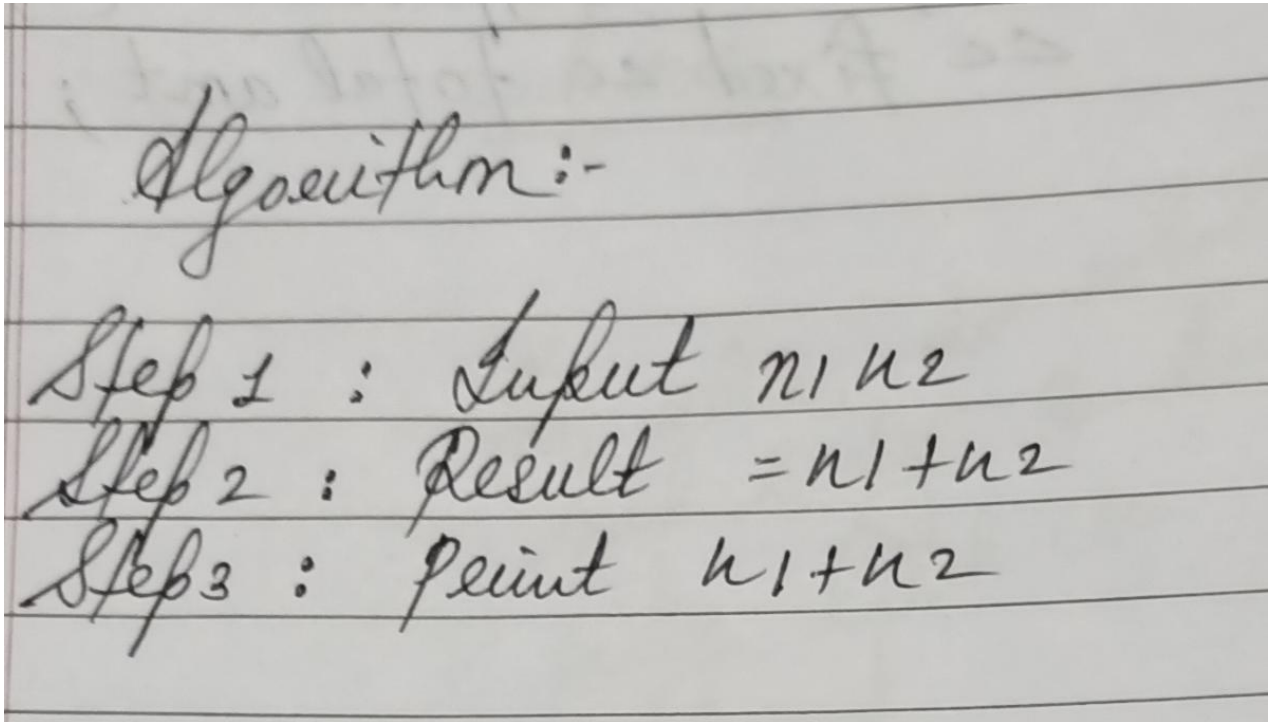 Algorithm:-
Step 1 : Input n1 n2
Step 2 : Result = n1+n2
Step3 : Print n1+n2